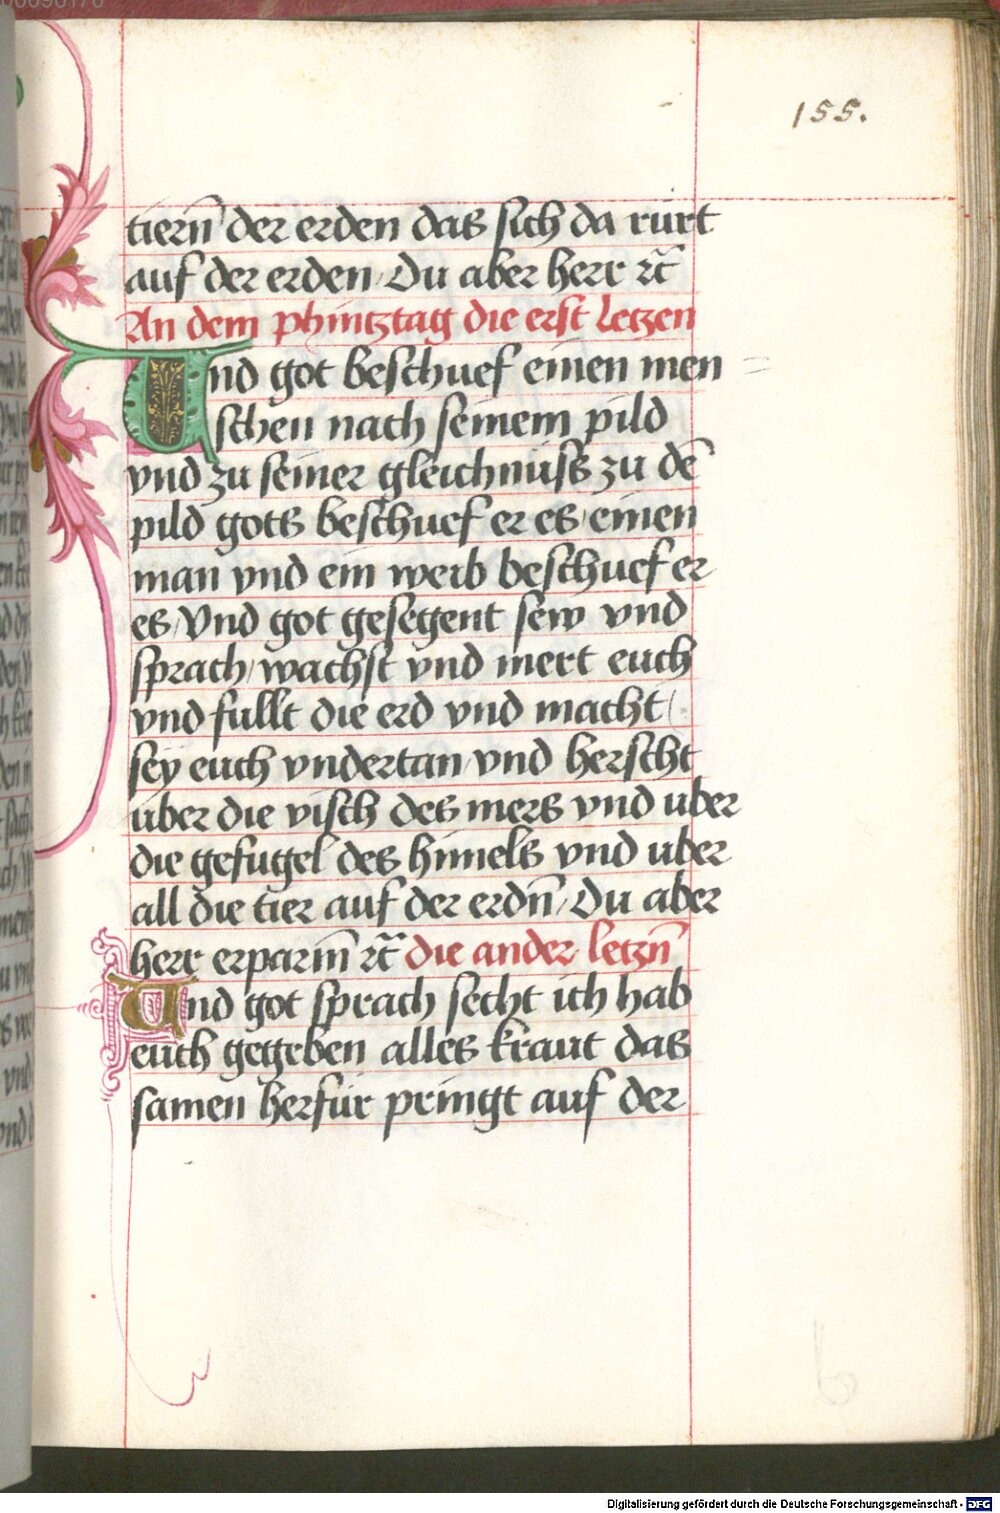 155.
tiern̄ der erden das sich da rürt
auf der erden / Du aber herr ꝛc̄
An dem phintztag die erst letzen
Und got beschuef einen men
schen nach seinem pild
vnd zu seiner gleichnüss zu dē
pild gots beschuef er es / einen
man vnd ein weib beschuef er
es / Vnd got gesegent sew vnd
sprach / wachst vnd mert euch
vnd fullt die erd vnd macht /
sey euch vndertan / vnd herscht
über die visch des mers vnd uber
die gefugel des himels vnd uber
all die tier auf der erdn̄ / Du aber
herr erparm̄ ꝛc̄ die ander letzn̄
Und got sprach secht ich hab
euch gegeben alles kraut das
samen herfür pringt auf der
Digitalisierung gefördert durch die Deutsche Forschungsgemeinschaft - DFG